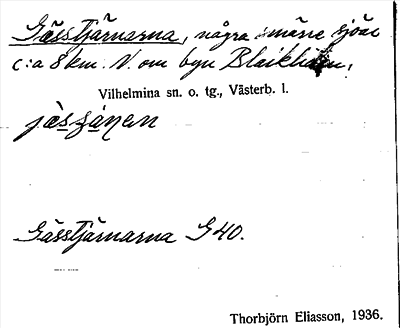 Gässtjärnarna, några smärre sjöar
c:a 8 km. V. om byn Blaikliden,
Vilhelmina sn. o. tg., Västerb. l.
Gässtjärnarna G40.
Thorbjörn Eliasson, 1936.